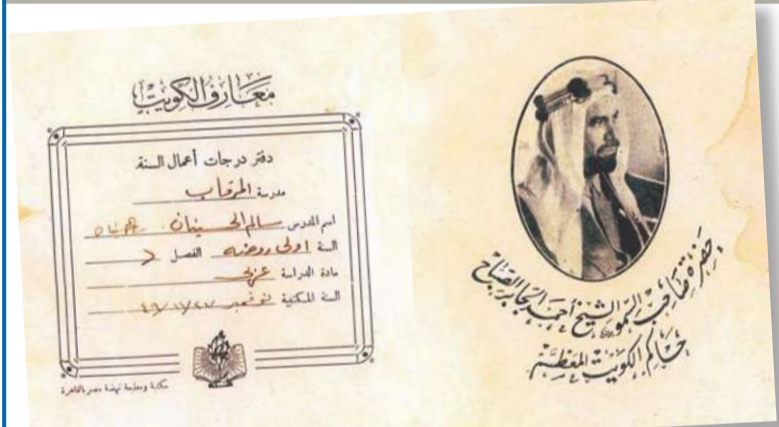 معارف الكويت
دفتر درجات أعمال السنة
مدرسة المرقاب
اسم المدرس سالم الحسينان
السنة اولى روضه الفصل د
مادة الدراسة عربي
السنة المكتبية نوفمبر ٤٦/٤٧
مكتبة ومطبعة نهضة مصر بالقاهرة
حضرة صاحب السمو الشيخ أحمد الجابر الصباح
حاكم الكويت المعظم